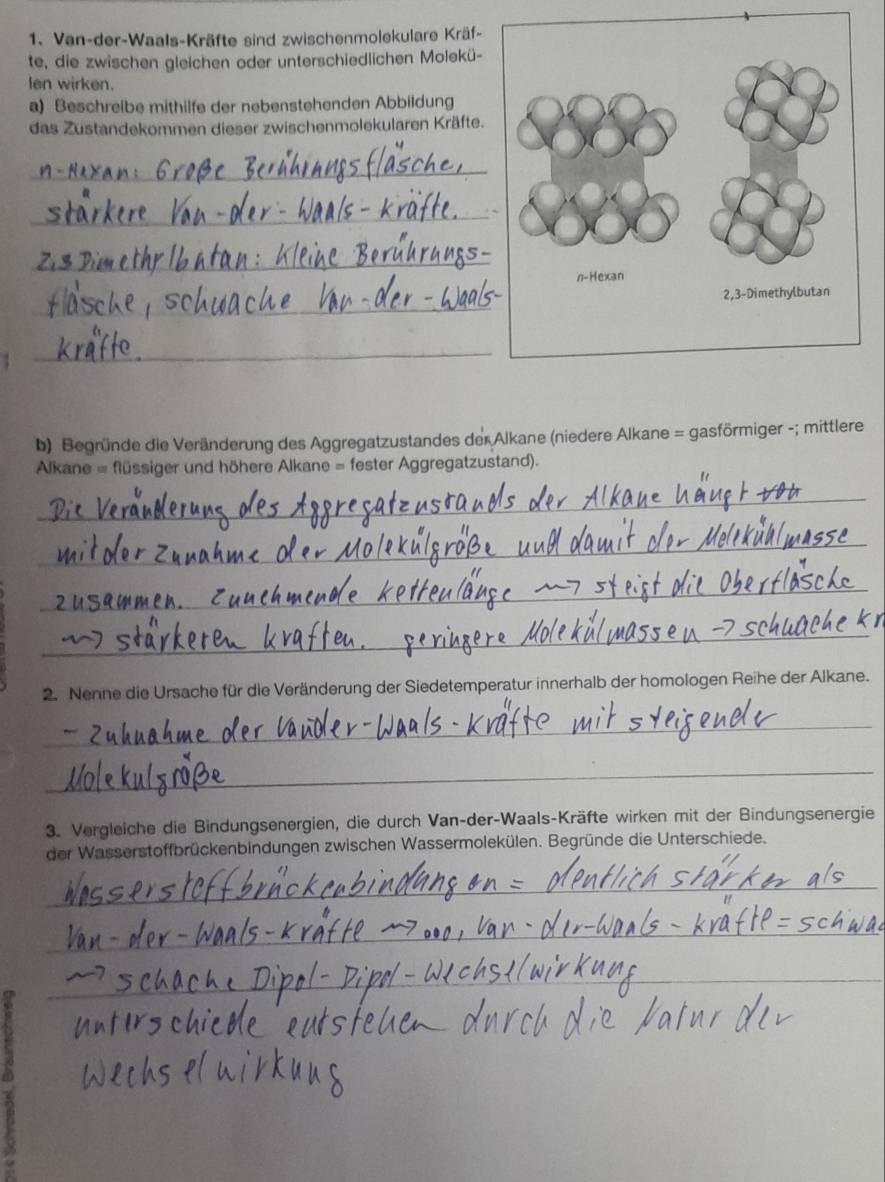 1. Van-der-Waals-Kräfte sind zwischenmolekulare Kräf-
te, die zwischen gleichen oder unterschiedlichen Molekü-
len wirken.
a) Beschreibe mithilfe der nebenstehenden Abbildung
das Zustandekommen dieser zwischenmolekularen Kräfte.
n-Hexan: Große Berührungsfläsche,
stärkere Van-der-Waals-kräfte.
2,3 Dimethylbutan: kleine Berührungs-
fläsche, schwache Van-der-Waals-
kräfte.
n-Hexan
2,3-Dimethylbutan
b) Begründe die Veränderung des Aggregatzustandes der Alkane (niedere Alkane = gasförmiger -; mittlere
Alkane = flüssiger und höhere Alkane = fester Aggregatzustand).
Die Veränderung des Aggregatzustands der Alkane hängt von
mit der Zunahme der Molekülgröße und damit der Molekühlmasse
zusammen. Zunehmende kettenlänge ~> steigt die Oberfläsche
~> stärkeren kraften. geringere Molekülmassen -> schwache kr
2. Nenne die Ursache für die Veränderung der Siedetemperatur innerhalb der homologen Reihe der Alkane.
- Zuhnahme der Vander-Waals-kräfte mit steigender
Molekulgröße
3. Vergleiche die Bindungsenergien, die durch Van-der-Waals-Kräfte wirken mit der Bindungsenergie
der Wasserstoffbrückenbindungen zwischen Wassermolekülen. Begründe die Unterschiede.
Wasserstoffbrückenbindungen = deutlich stärker als
Van-der-Waals-kräfte ~> ..., Van-der-Waals-kräfte = schwa
~> schache Dipol-Dipol-Wechselwirkung
unterschiede entstehen durch die Natur der
Wechselwirkung
Schroedel, Braunschweig